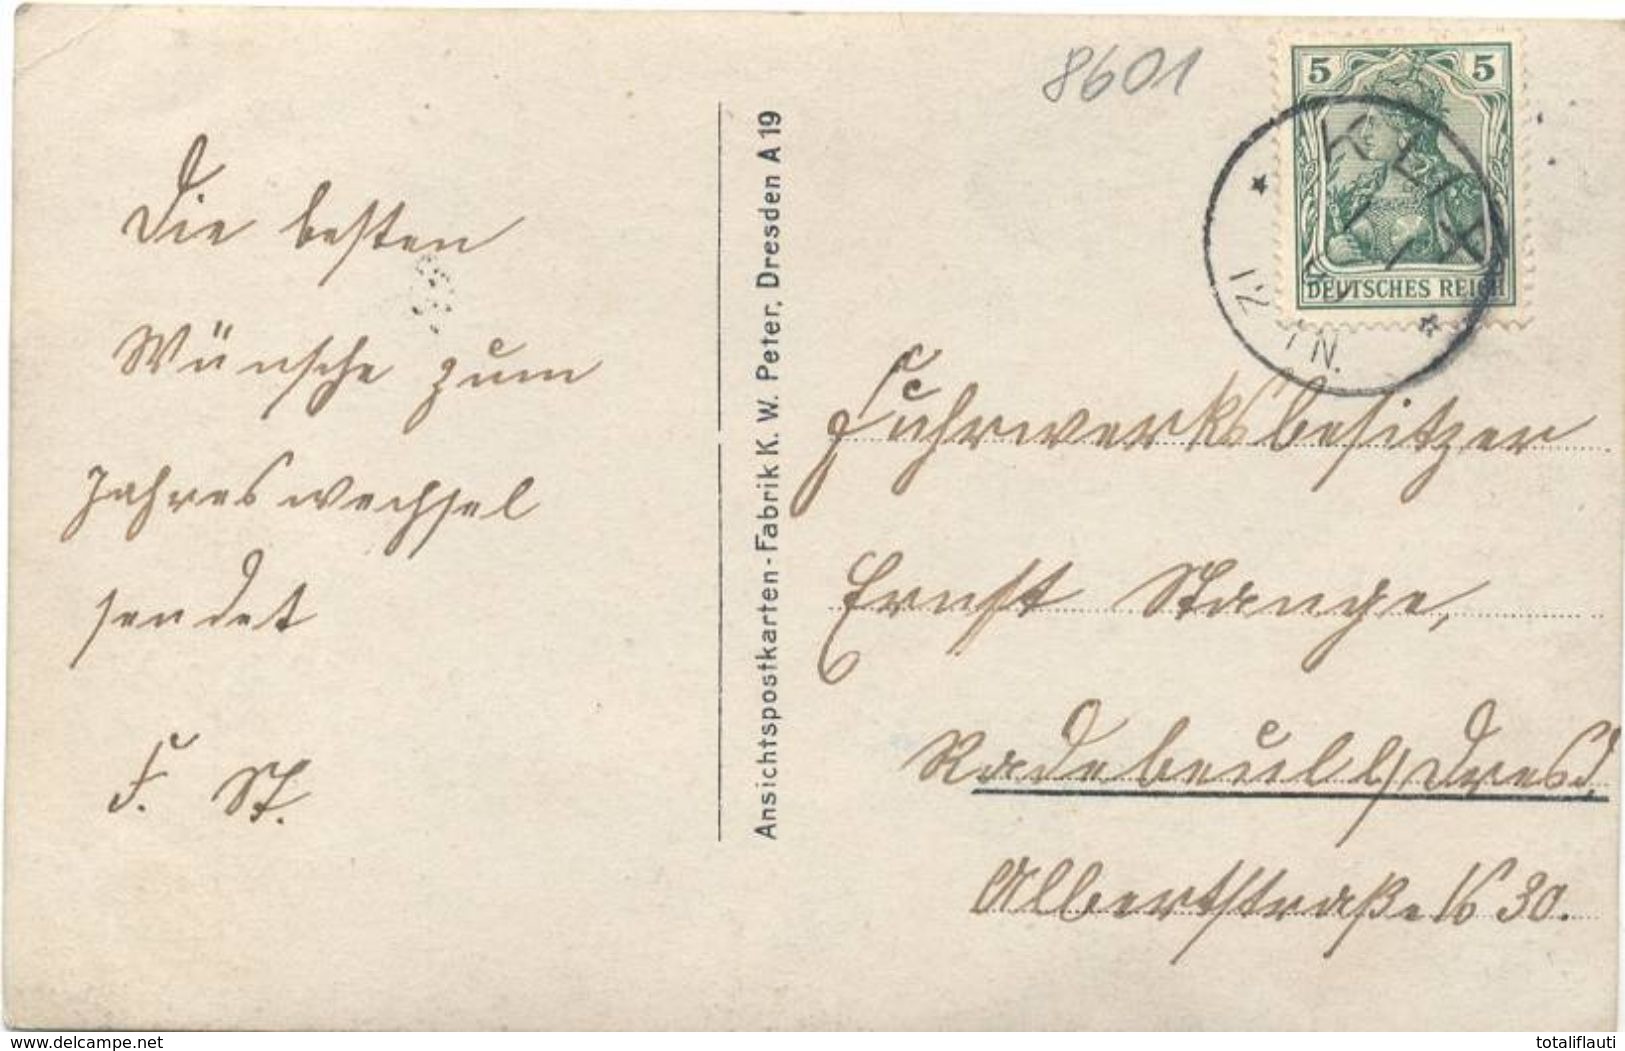 8601
5 5
DEUTSCHES REICH
KLIX
12-1 N.
Die besten
Wünsche zum
Jahreswechsel
sendet
F. St.
Ansichtspostkarten-Fabrik K. W. Peter, Dresden A 19
Fuhrwerksbesitzer
Ernst Stange,
Radebeul b/Dresd.
Albertstraße № 30.
www.delcampe.net
totaliflauti